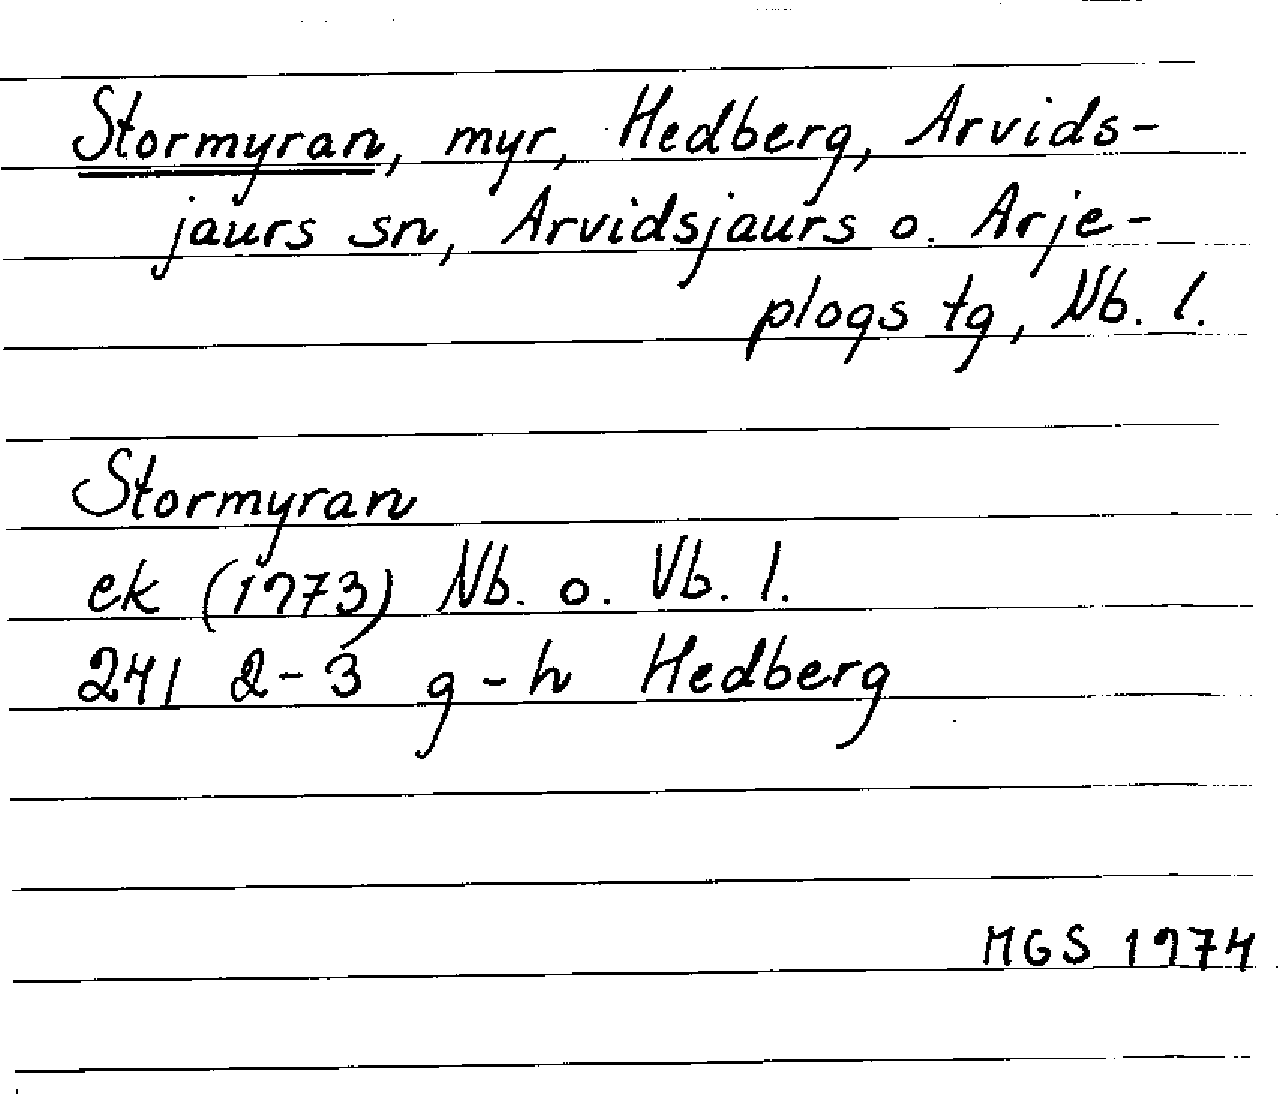 Stormyran, myr, Hedberg, Arvids-
jaurs sn, Arvidsjaurs o. Arje-
plogs tg, Nb. l.
Stormyran
ek (1973) Nb. o. Vb. l.
241 2-3 g-h Hedberg
MGS 1974